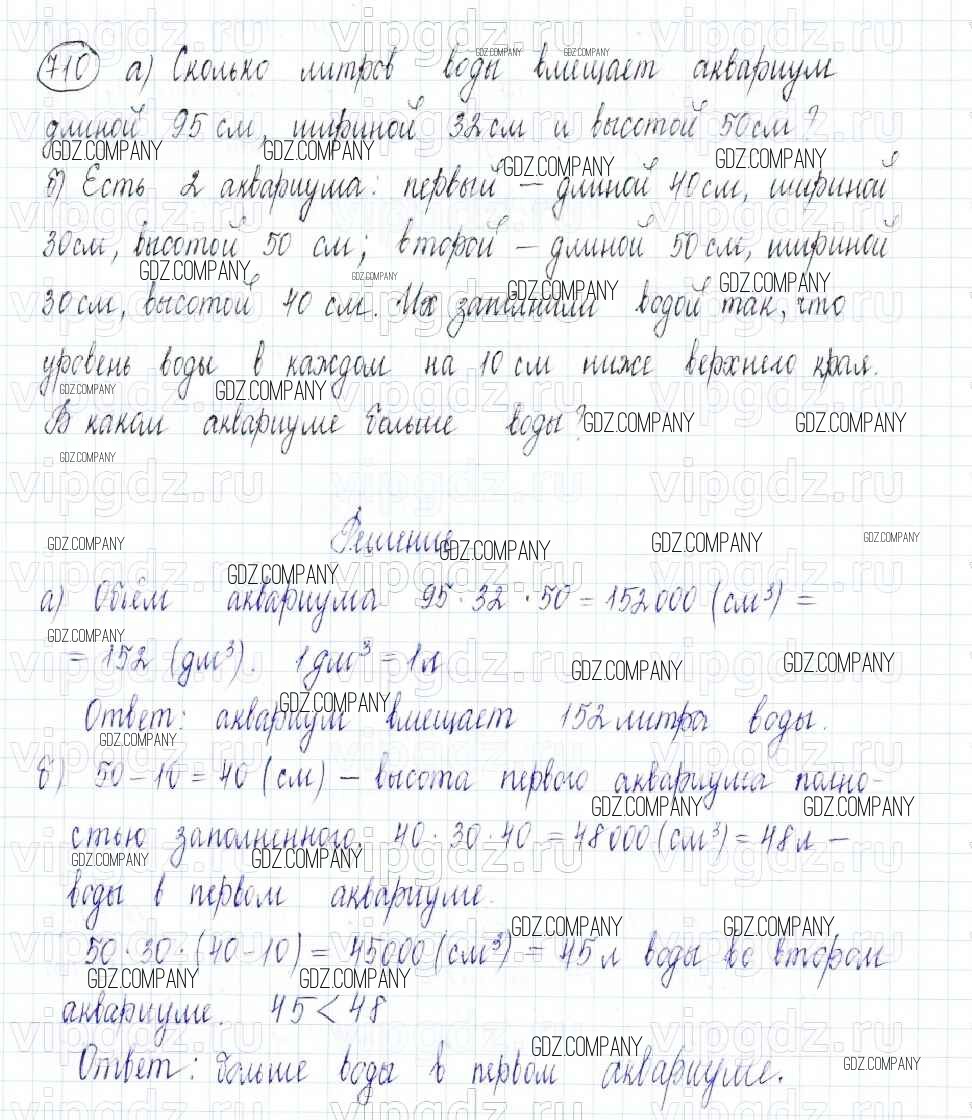 710 а) Сколько литров воды вмещает аквариум
длиной 95 см, шириной 32 см и высотой 50 см?
б) Есть 2 аквариума: первый — длиной 40 см, шириной
30 см, высотой 50 см; второй — длиной 50 см, шириной
30 см, высотой 40 см. Их заполнили водой так, что
уровень воды в каждом на 10 см ниже верхнего края.
В каком аквариуме больше воды?
Решение
а) Объём аквариума 95 · 32 · 50 = 152000 (см³) =
= 152 (дм³). 1 дм³ = 1 л
Ответ: аквариум вмещает 152 литра воды.
б) 50 − 10 = 40 (см) — высота первого аквариума полно-
стью заполненного. 40 · 30 · 40 = 48000 (см³) = 48 л —
воды в первом аквариуме.
50 · 30 · (40 − 10) = 45000 (см³) = 45 л воды во втором
аквариуме. 45 < 48
Ответ: больше воды в первом аквариуме.
GDZ.COMPANY
vipgdz.ru